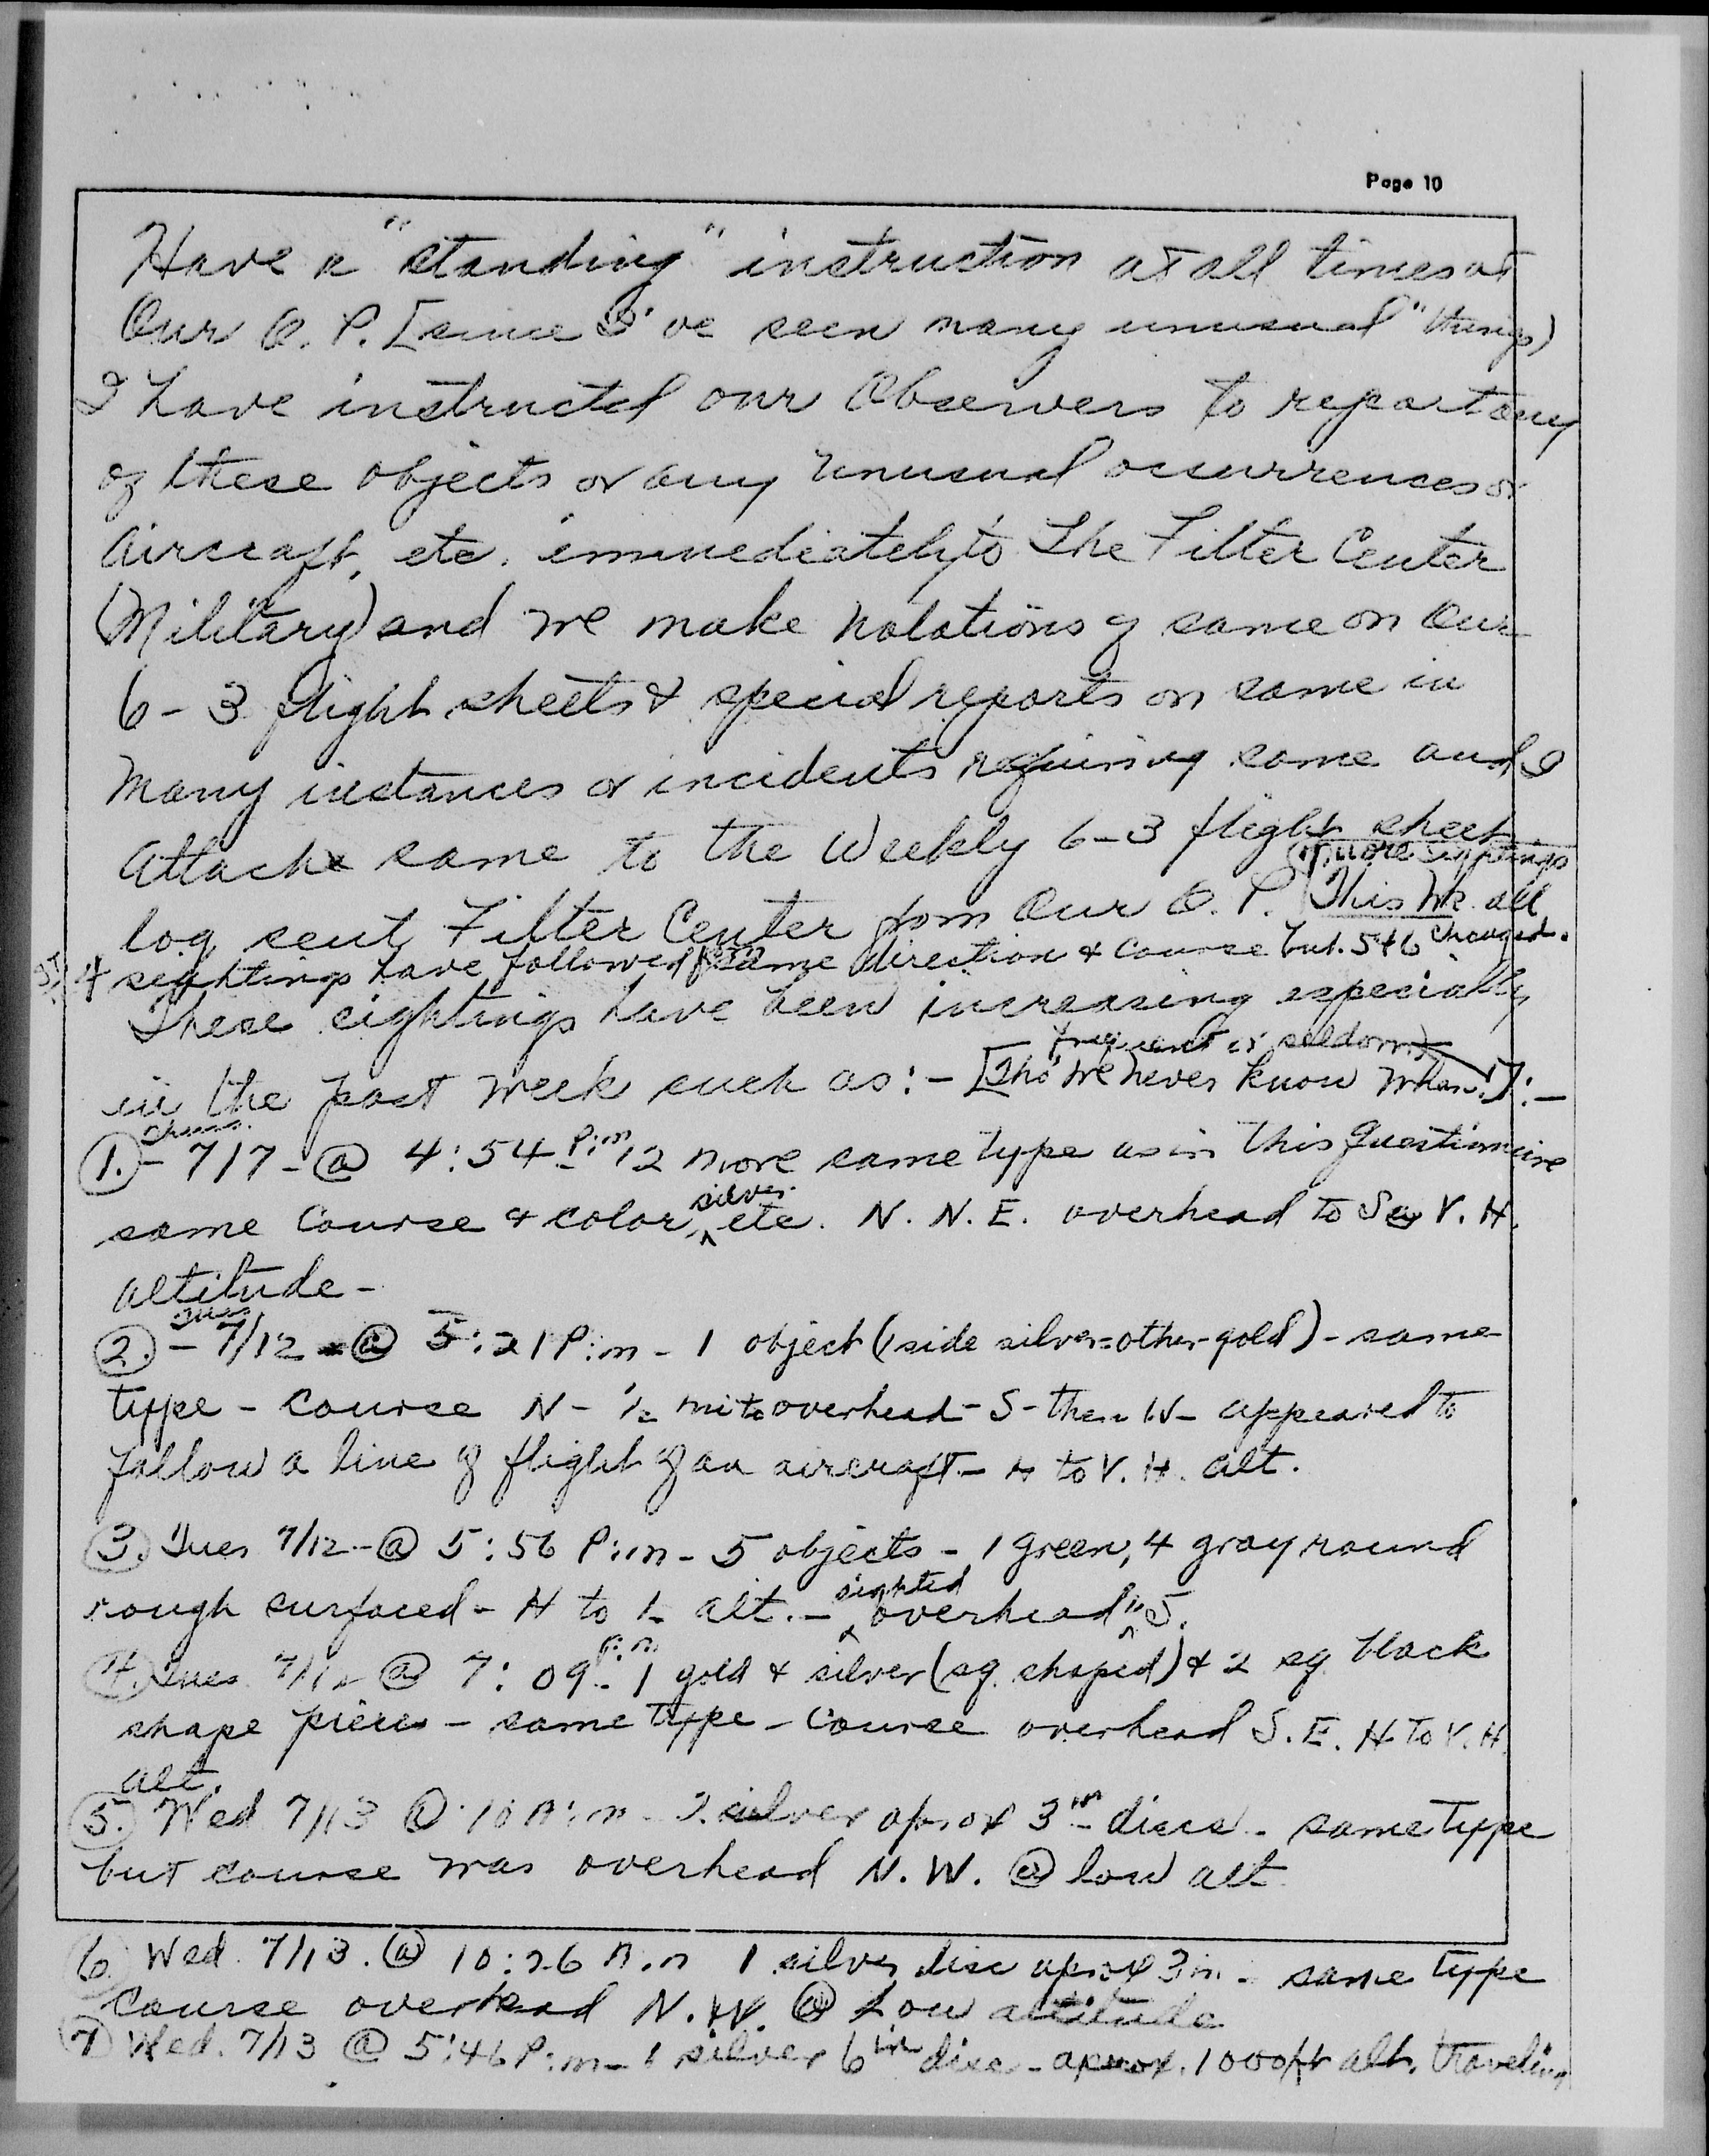 Page 10
Have a "standing" instruction at all times at
Our O. P. [since I've seen many unusual "things)
I have instructed our Observers to report any
of these objects or any unusual occurrences or
Aircraft, etc. immediately to The Filter Center
(Military) and we make notations of same on Our
6-3 flight sheets & special reports on same in
Many instances or incidents requiring same and I
Attach same to the Weekly 6-3 flight sheet
log sent Filter Center from Our O. P. (This wk. all
more sightings
4 sightings have followed same direction & course but 5+6 changed.
These sightings have been increasing especially
frequent or seldom
in the past week such as:- [Tho' we never know when!]:-
Thurs.
1.- 7/7-@ 4:54 P.m 12 more same type as in this Questionnaire
silver
same Course & color, etc. N. N. E. overhead to S V. H.
altitude-
Tues
2.- 7/12 @ 5:21 P:m - 1 object (1 side silver=other-gold) - same
type - Course N - 1/2 mi to overhead - S - then W - appeared to
follow a line of flight of an aircraft - H to V. H. alt.
3. Tues 7/12-@ 5:56 P:m - 5 objects - 1 green, 4 gray round
sighted
rough surfaced - H to L alt. - overhead S.
4. Tues. 7/12 @ 7:09 P:m 1 gold & silver (sq. shaped) & 2 sq. black
shape pieces - same type - Course overhead S. E. H to V. H.
alt.
5. Wed 7/13 @ 10 A:m - 2 silver aprox 3 in discs - same type
but course was overhead N. W. @ low alt
6. Wed. 7/13. @ 10:26 A.m 1 silver disc aprox 3 in - same type
Course overhead N. W. @ Low altitude
7 Wed. 7/13 @ 5:46 P:m - 1 silver 6 in disc - aprox. 1000ft alt, traveling